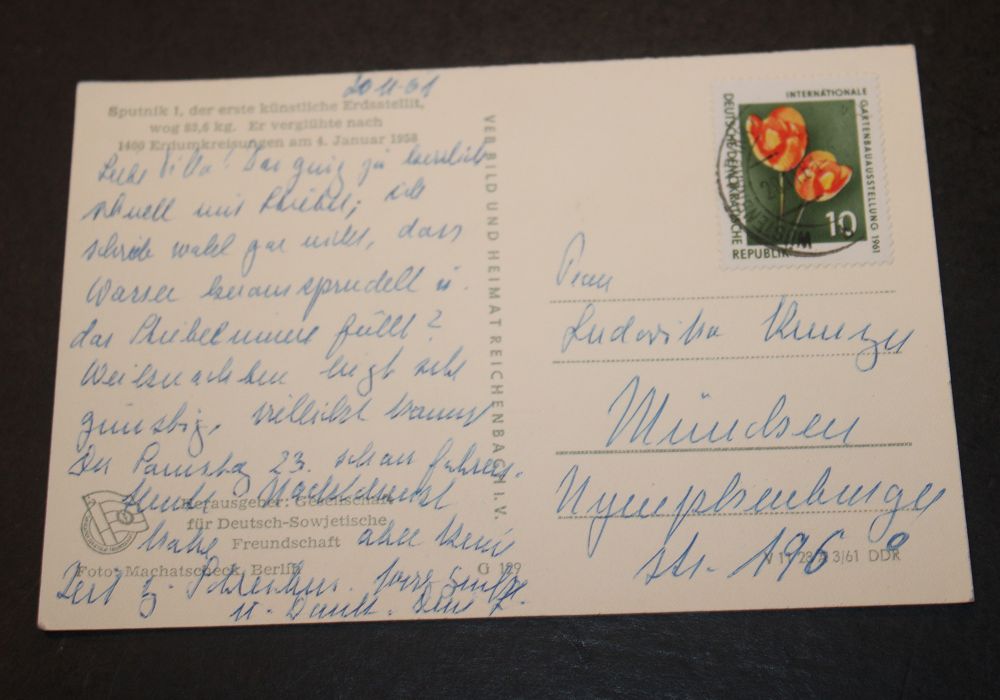 20.11.61
Sputnik 1, der erste künstliche Erdsatellit,
wog 83,6 kg. Er verglühte nach
1400 Erdumkreisungen am 4. Januar 1958
Das ging ja herrlich
schnell mit
schreibe wohl gar nicht, dass
Wasser heraussprudelt u.
das füllt?
Weihnachten liegt sehr
günstig, vielleicht kannst
Du Samstag 23. schon fahren.
Nachtdienst
habe aber keine
Zeit z. Schreiben.
u. Dank. Deine L.
Herausgeber: Gesellschaft
für Deutsch-Sowjetische
Freundschaft
Foto: Machatscheck, Berlin
G 129
VEB BILD UND HEIMAT REICHENBACH I. V.
INTERNATIONALE
GARTENBAUAUSSTELLUNG 1961
DEUTSCHE DEMOKRATISCHE
REPUBLIK
10
Frau
Ludovika
München
Nymphenburger
str. 196
3/61 DDR